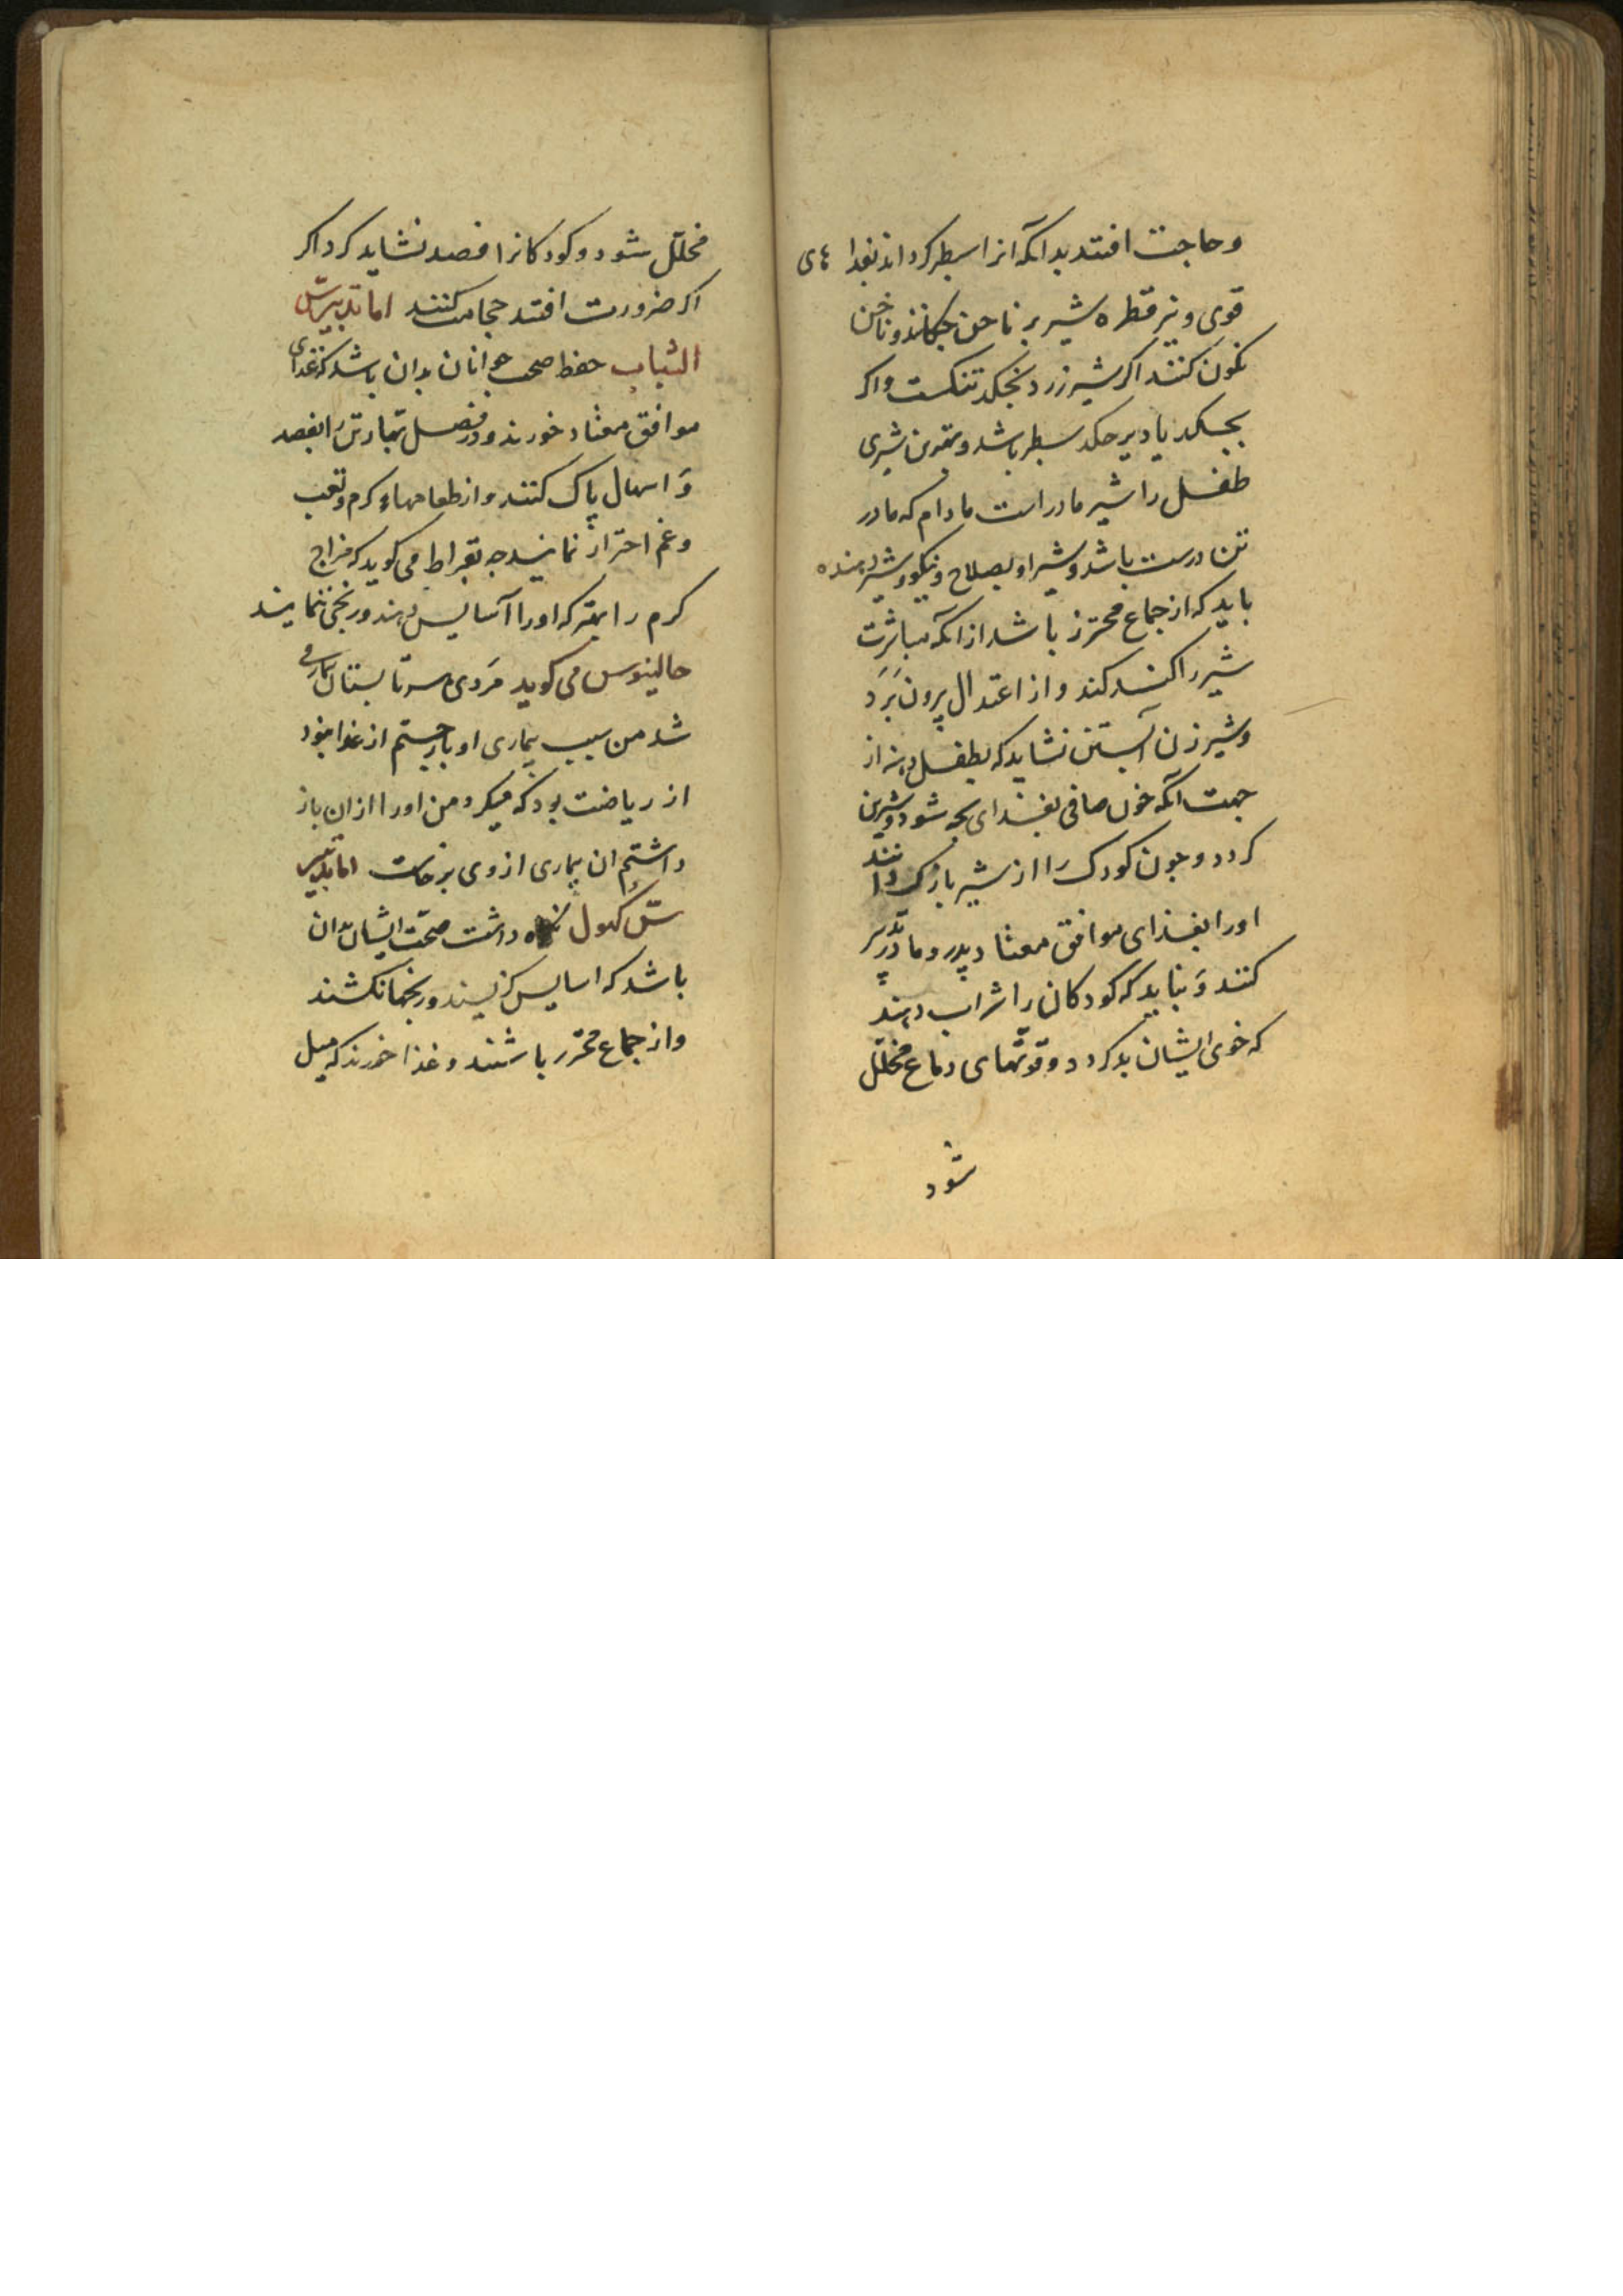 وحاجت افتد بدانکه انرا سطبر کرداند بغذا های
قوی و نیز قطره شیر بر ناخن چکانند و ناخن
نکون کنند اکر شیر زرد بچکد تنکست و اکر
بچکد یا دیر چکد سطبر باشد و بهترین شیری
طفل را شیر مادر است مادام که مادر
تن درست باشد و شیر او بصلاح و نیکو و شیر دهنده
باید که از جماع محترز باشد از انکه مباشرت
شیر را کنده کند و از اعتدال بیرون بَرَد
و شیر زن آبستن نشاید که بطفل دهند از
جهت انکه خون صافی بغذای بچه شود و شیرین
کردد و چون کودک را از شیر باز کنند
اورا بغذای موافق معتاد پدر و مادر تدبیر
کنند وَ نباید که کودکان را شراب دهند
که خوی ایشان بد کردد و قوتهای دماغ مخلّل
شود
مخلّل شود و کودکانرا فصد نشاید کرد اکر
اکر ضرورت افتد حجامت کنند اما تدبیر سنّ
الشباب حفظ صحت جوانان بدان باشد که غذای
موافق معتاد خورند و در فصل بهار تن را بفصد
وَ اسهال پاک کنند و از طعامهاء کرم و تعب
و غم احتراز نمایند جه بقراط می کوید که مزاج
کرم را بهتر که اورا آسایس دهند و رنجی ننمایند
جالینوس می کوید مَردی هر تابستان بیمار می
شد من سبب بیماری او باز جستم از غذا نبود
از ریاضت بود که میکرد من اورا ازان باز
داشتم ان بیماری از وی برخاست اما تدبیر
سنّ کهول نکاه داشت صحّت ایشان بدان
باشد که اسایس کزینند و رنجها نکشند
و از جماع محترز باشند و غذا خورند که میل